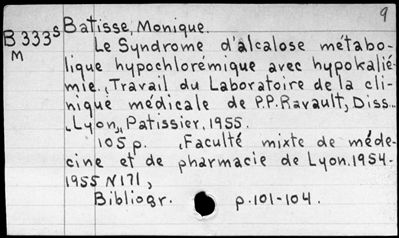 9
B333s Batisse, Monique.
M Le Syndrome d'alcalose métabo-
lique hypochlorémique avec hypokalié-
mie., Travail du Laboratoire de la cli-
nique médicale de P.P. Ravault, Diss...
„Lyon„, Patissier, 1955.
105 p. „Faculté mixte de méde-
cine et de pharmacie de Lyon. 1954-
1955 N171,
Bibliogr. p. 101-104.